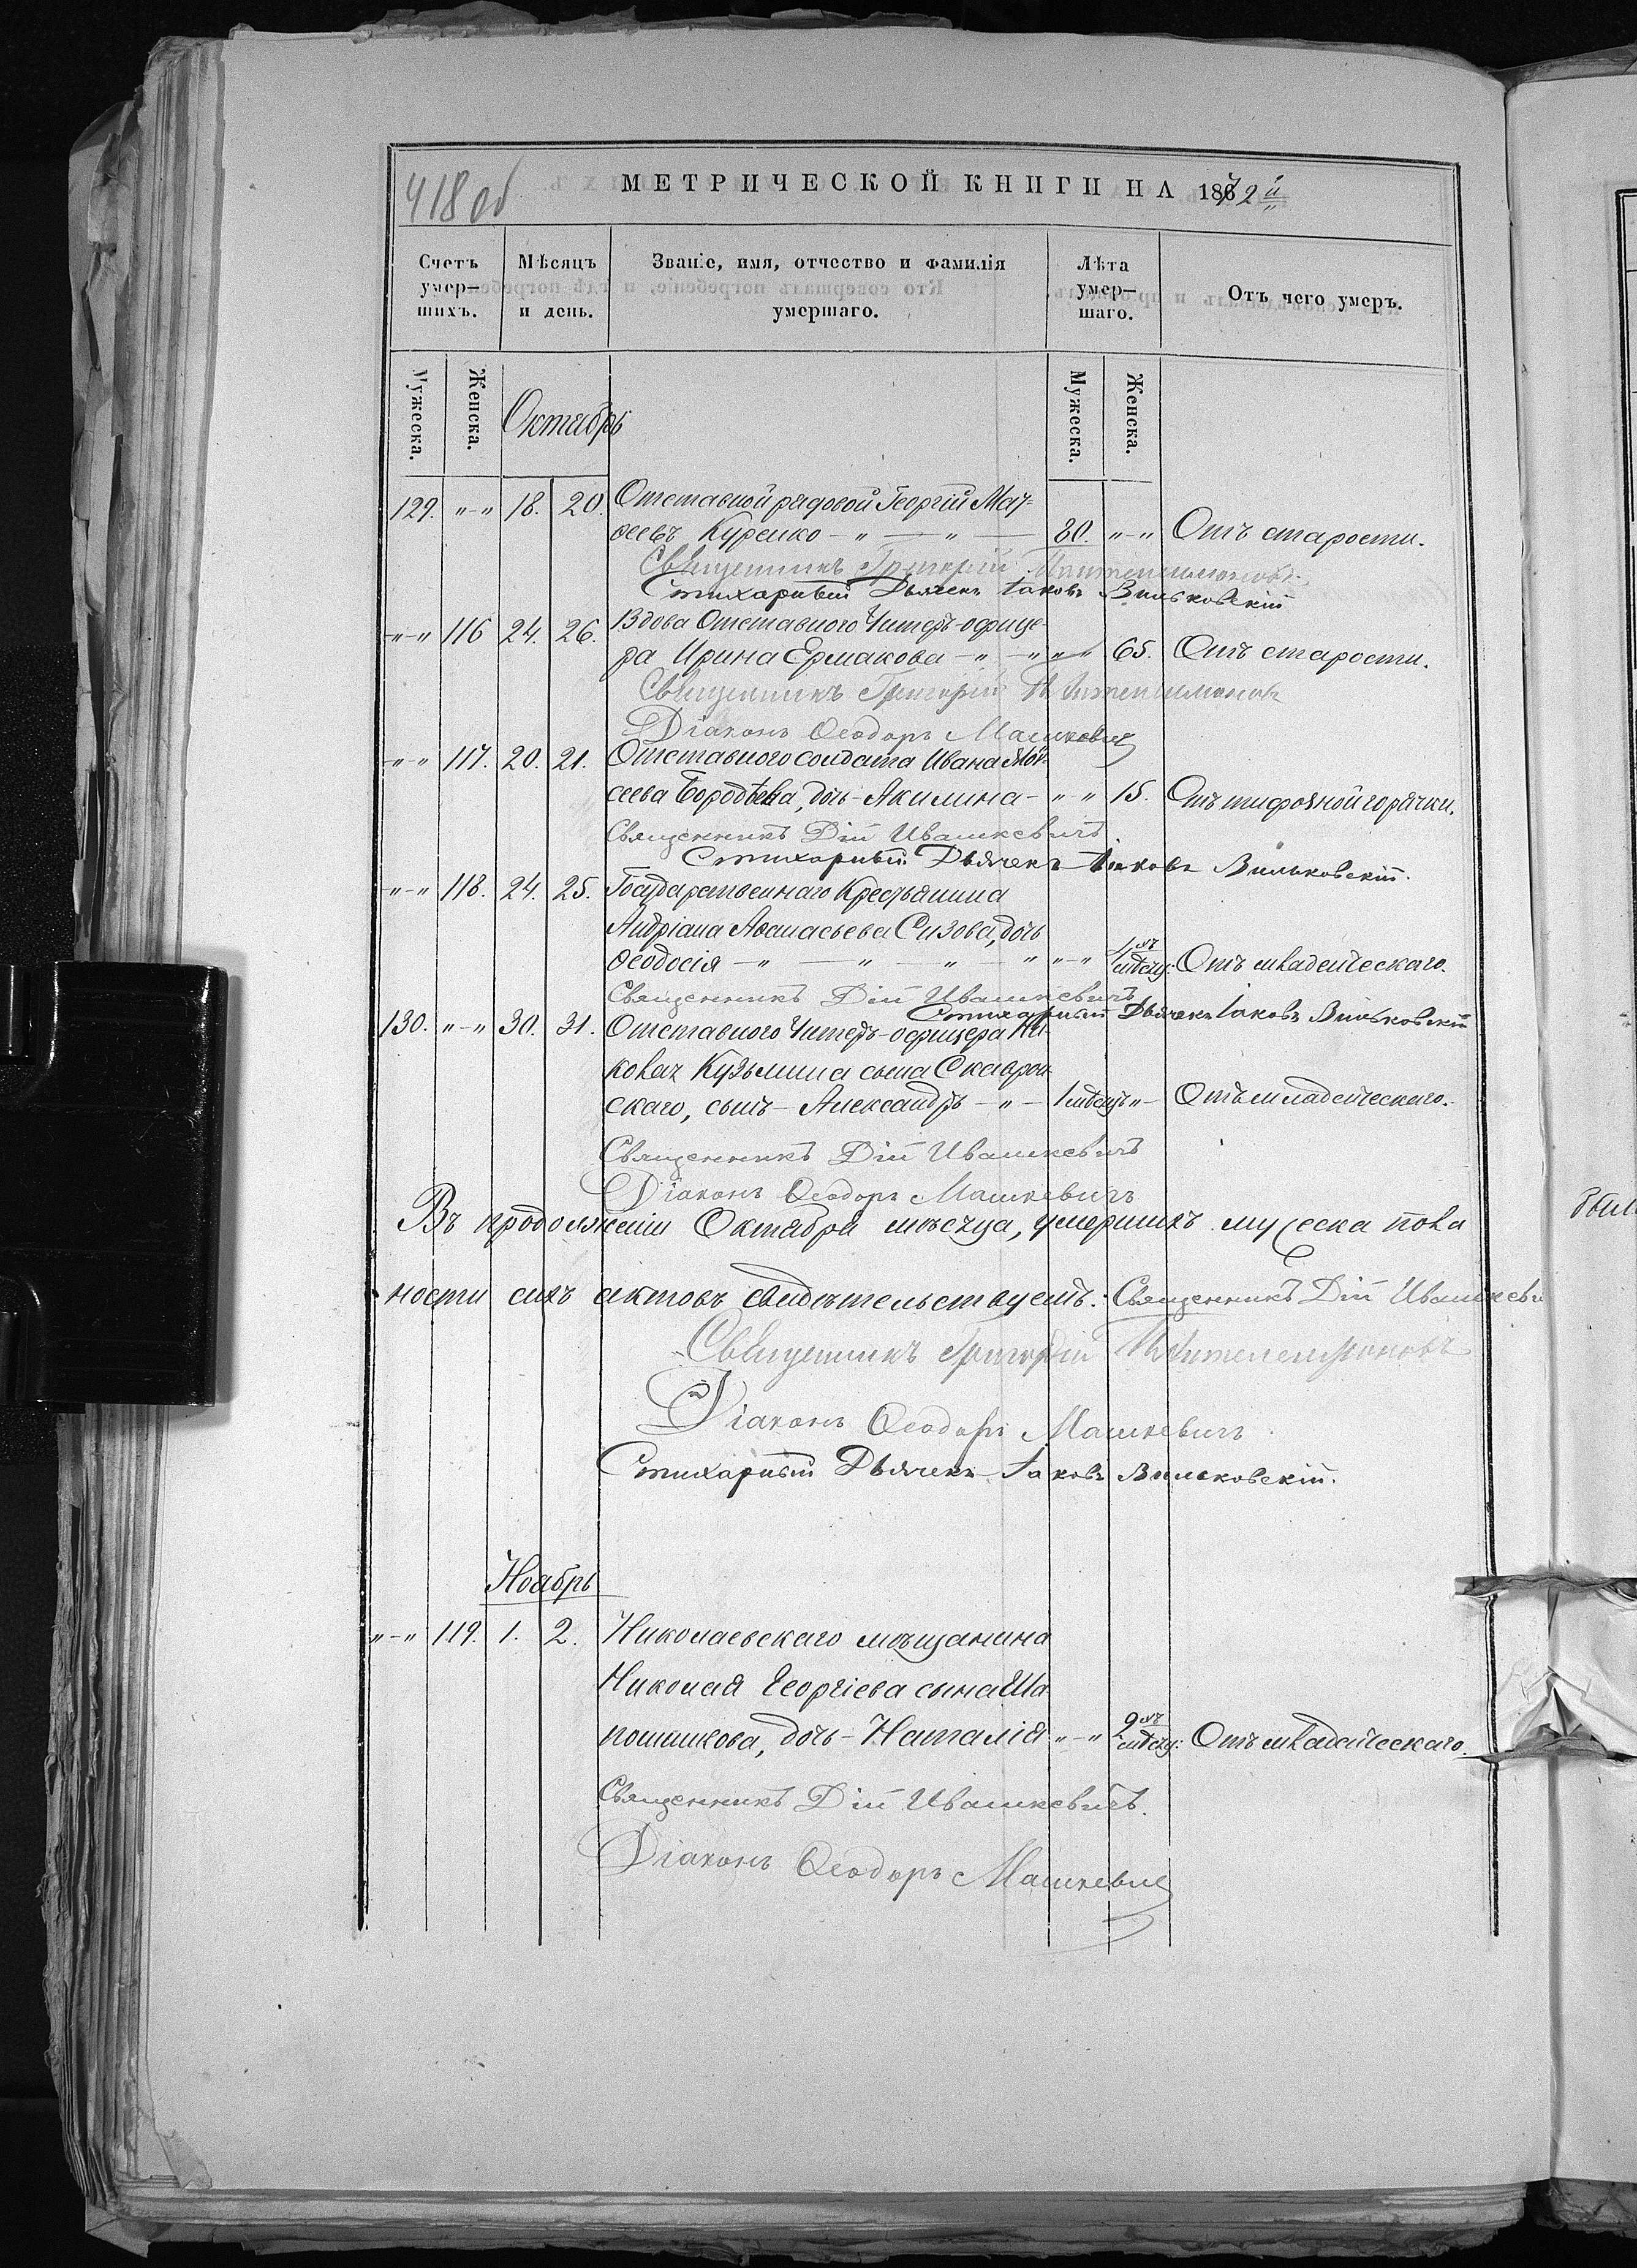 418 об
МЕТРИЧЕСКОЙ КНИГИ НА 1872й
Счетъ умер-шихъ.
Мѣсяцъ и день.
Званіе, имя, отчество и фамилія умершаго.
Лѣта умер-шаго.
Отъ чего умеръ.
Мужеска.
Женска.
Октябрь
Мужеска.
Женска.
129. "-" 18. 20. Отставной рядовой Георгій
Куренко - " - " - 80. "-" Отъ старости.
Священникъ Григорій
Стихарный Дьячекъ Іаковъ Вильковскій
"-" 116 24. 26. Вдова Отставного Унтеръ-офице-
ра Ирина Ермакова - " - " " " 65. Отъ старости.
Священникъ Григорій
Діаконъ Ѳеодоръ Машкевич
"-" 117. 20. 21. Отставного солдата Ивана Мои-
сеева дочь - Акилина - "-" 15. Отъ тифозной горячки.
Священникъ Дій Ивашкевичъ.
Стихарный Дьячекъ Іаковъ Вильковскій.
"-" 118. 24. 25. Государственнаго Крестьянина
Андріана Аѳанасьева Сизова, дочь
Ѳеодосія - " - " - " - " "-" 1 мѣсяц: Отъ младенческаго.
Священникъ Дій Ивашкевичъ
Стихарный Дьячекъ Іаковъ Вильковскій
130. "-" 30. 31. Отставного Унтеръ-офицера Ни-
колая Кузьмина сына Скаврон
скаго, сынъ - Александръ - " - 1 мѣсяцъ " - Отъ младенческаго.
Священникъ Дій Ивашкевичъ
Діаконъ Ѳеодоръ Машкевичъ
Въ продолженіи Октября мѣсяца, умершихъ мужеска пола
ности сихъ актовъ свидѣтельствуемъ: Священникъ Дій Ивашкеви
Священникъ Григорій
Діаконъ Ѳеодоръ Машкевичъ
Стихарный Дьячекъ Іаковъ Вильковскій.
Ноябрь
"-" 119. 1. 2. Николаевскаго мѣщанина
Николая Георгіева сына Ша
пошникова, дочь - Наталія "-" 2 мѣсяц: Отъ младенческаго.
Священникъ Дій Ивашкевичъ.
Діаконъ Ѳеодоръ Машкевич